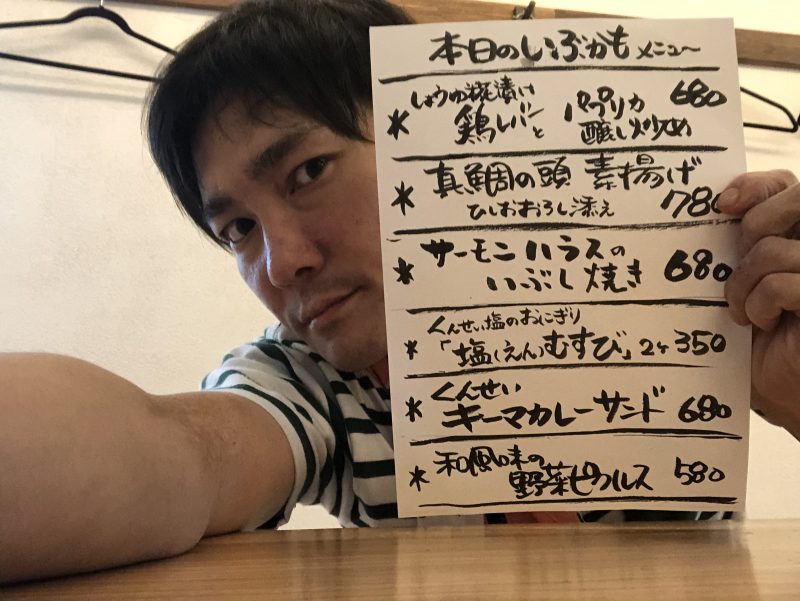 本日のいぶかもメニュー
＊しょうゆ糀漬け
鶏レバーと パプリカ 680
醸し炒め
＊真鯛の頭 素揚げ
ひしおおろし添え 780
＊サーモンハラスの
いぶし焼き 680
くんせい塩のおにぎり
＊「塩(えん)むすび」2ヶ 350
＊くんせい
キーマカレーサンド 680
＊和風味の
野菜ピクルス 580